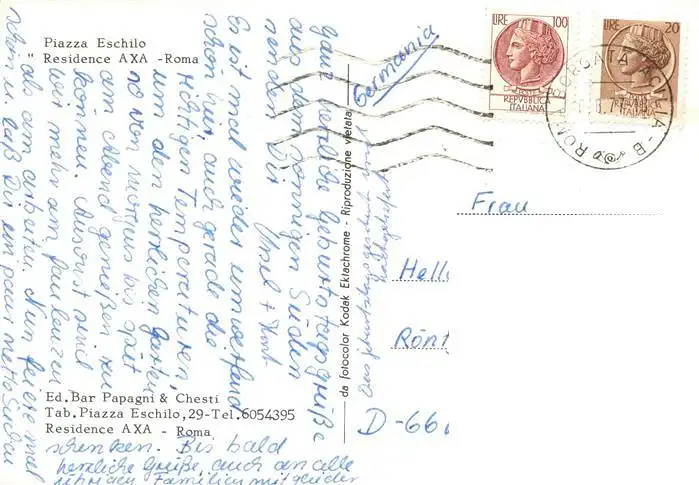 Piazza Eschilo
Residence AXA -Roma
ganz herzliche Geburtstagsgrüße
aus dem sonnigen Süden
senden Dir
Ursel + Kurt
Es ist mal wieder umwerfend
schön hier, auch gerade die
richtigen Temperaturen,
um den herrlichen Garten
so von morgens bis spät
am Abend genießen zu
können. Ansonst sind
wir mehr am faulenzen
als am arbeiten. Nun feiere mal
schön u. laß Dir ein paar nette Sachen
schenken. Bis bald
herzliche Grüße, auch an alle
übrigen Familienmitglieder
Ed.Bar Papagni & Chesti
Tab.Piazza Eschilo,29-Tel.6054395
Residence AXA - Roma
da fotocolor Kodak Ektachrome - Riproduzione vietata
Dies
Germania
LIRE 100
REPVBBLICA
ITALIANA
LIRE 20
REPVBBLICA
ITALIANA
ROMA BORGATA ACILIA - B
Frau
Hell
Rönt
D-66